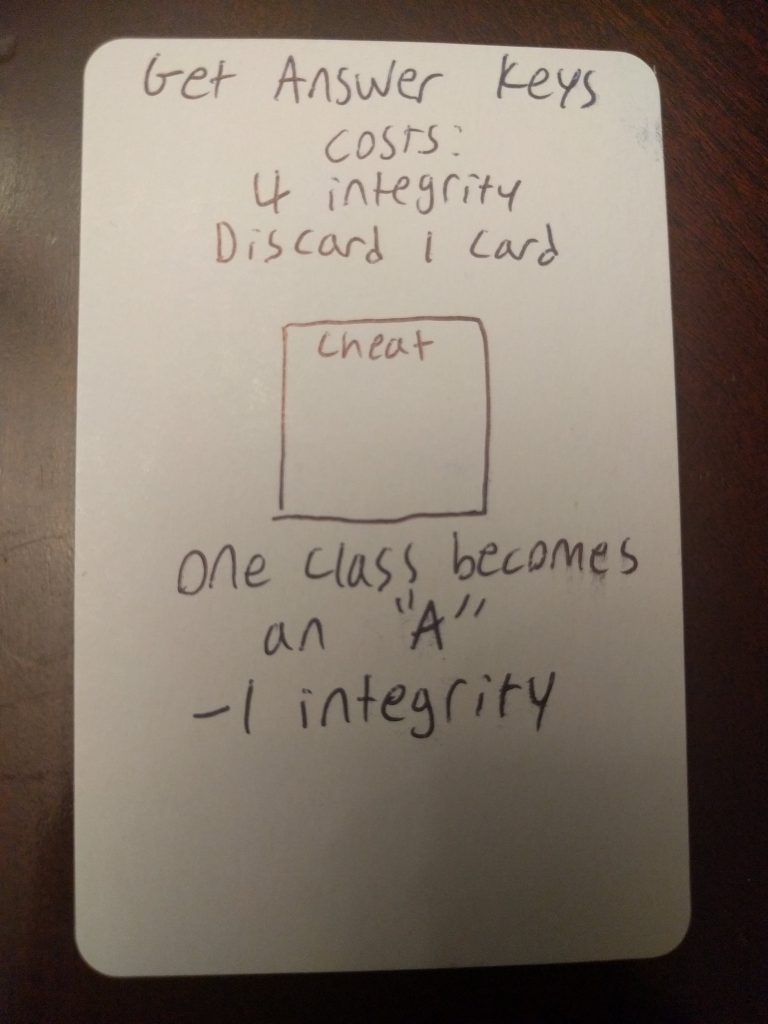 Get Answer Keys
Costs:
4 integrity
Discard 1 card
Cheat
one class becomes
an "A"
-1 integrity